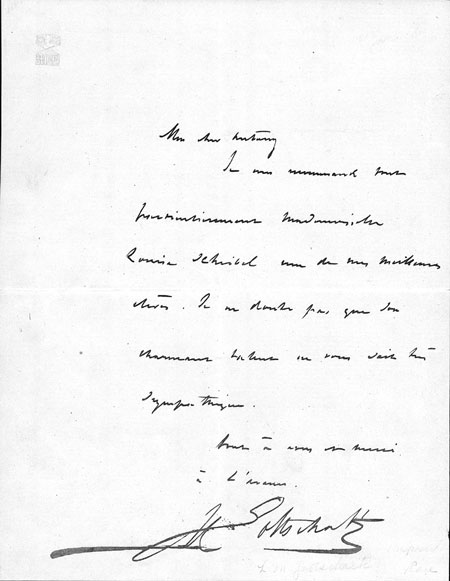 Mon cher Antony
Je vous recommande tout
particulièrement Mademoiselle
Louisa une de mes meilleures
élèves. Je ne doute pas que son
charmant talent ne vous soit très
sympathique.
Tout à vous et merci
à l'avance.
Gottschalk
L M Gottschalk